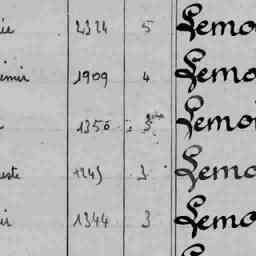 ie 2324 5 Lemo
imir 1909 4 Lemo
1350 3 Lemoi
este 1245 3 Lemo
ir 1344 3 Lemo